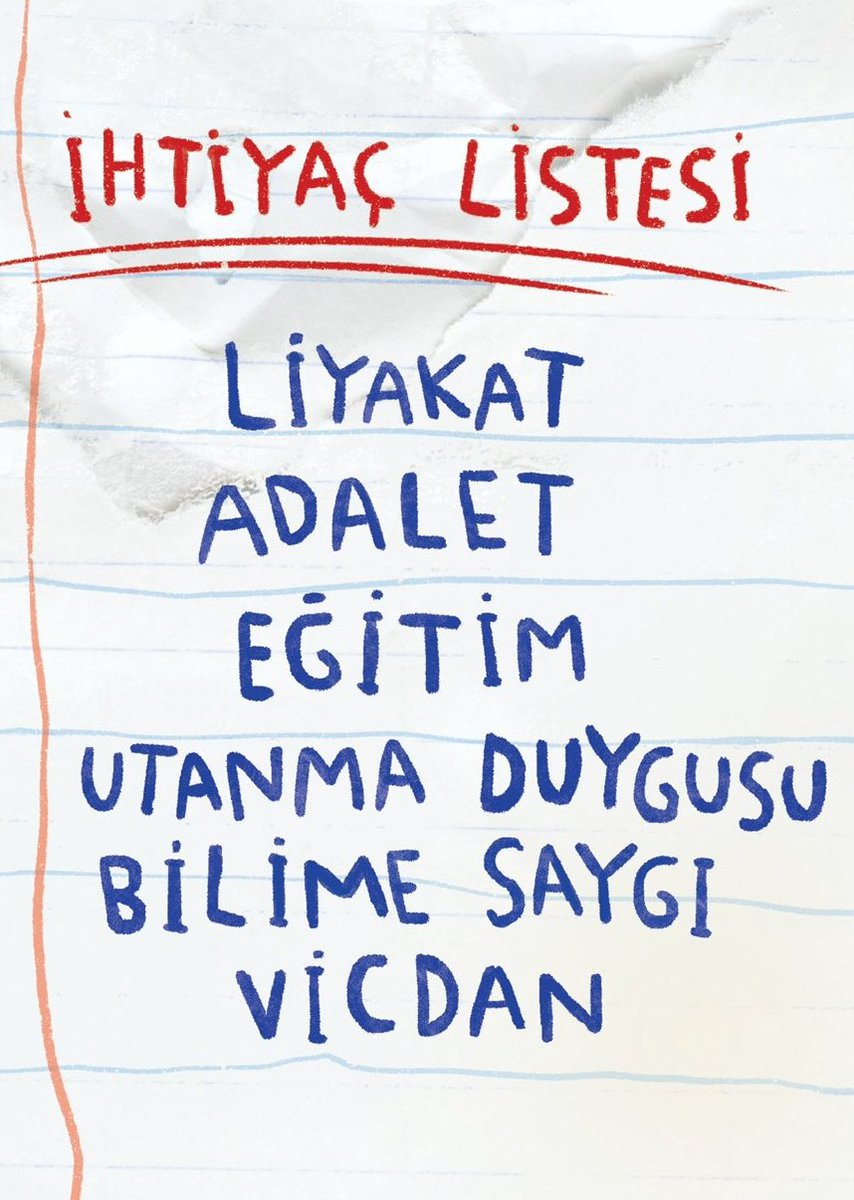 İHTİYAÇ LİSTESİ
LİYAKAT
ADALET
EĞİTİM
UTANMA DUYGUSU
BİLİME SAYGI
VİCDAN